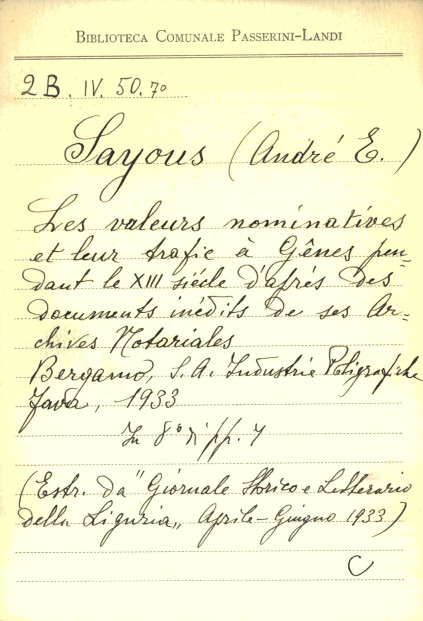 BIBLIOTECA COMUNALE PASSERINI-LANDI
2B. IV. 50.70
Sayous (André E.)
Les valeurs nominatives
et leur trafic à Gênes pen-
dant le XIII siécle d'aprés des
documents inédits de ses Ar-
chives Notariales
Bergamo, S. A. Industrie Poligrafiche
Java, 1933
In 8° di pp. 7
(Estr. da "Giornale Storico e Letterario
della Liguria„ Aprile-Giugno 1933)
C